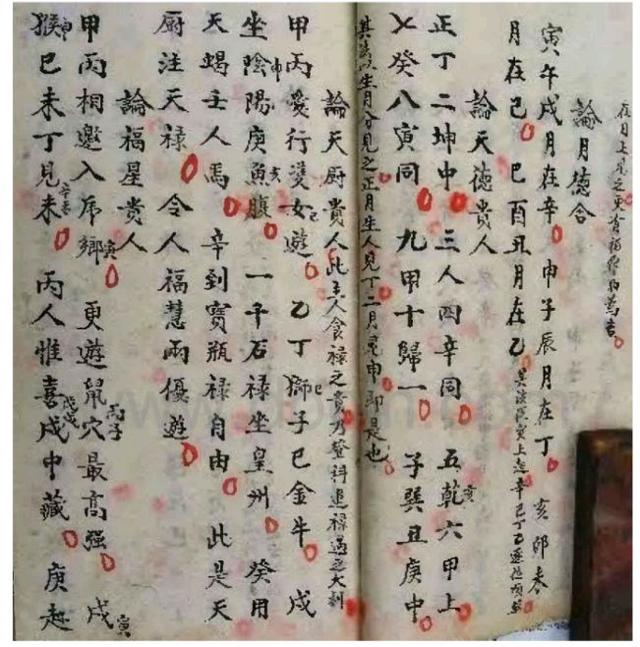 在月上見之更有福
論月德合
寅午戌月在辛 申子辰月在丁 亥卯未
月在己 巳酉丑月在乙
論天德貴人
正丁二坤中 三人四辛同 五乾亥六甲上
七癸八寅同 九甲十歸一 子巽丑庚中
其法以生月分見之正月生人見丁二月見申即是也
論天厨貴人此主人食祿之貴乃登科進祿遇之大利
甲丙愛行雙女遊 乙丁獅子巳金牛 戌
坐陰陽申庚魚腹亥 一千石祿坐皇州 癸用
天蝎壬人馬 辛到寶瓶祿自由 此是天
厨注天祿 令人福慧兩優遊
論福星貴人
甲丙相邀入虎鄉寅 更遊鼠穴最高强 戌
猴申巳未丁見未 丙人惟喜戌中藏 庚趁